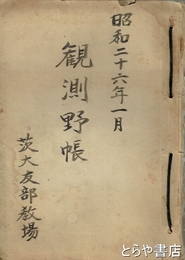 昭和二十六年一月
観測野帳
茨大友部教場
©とらや書店